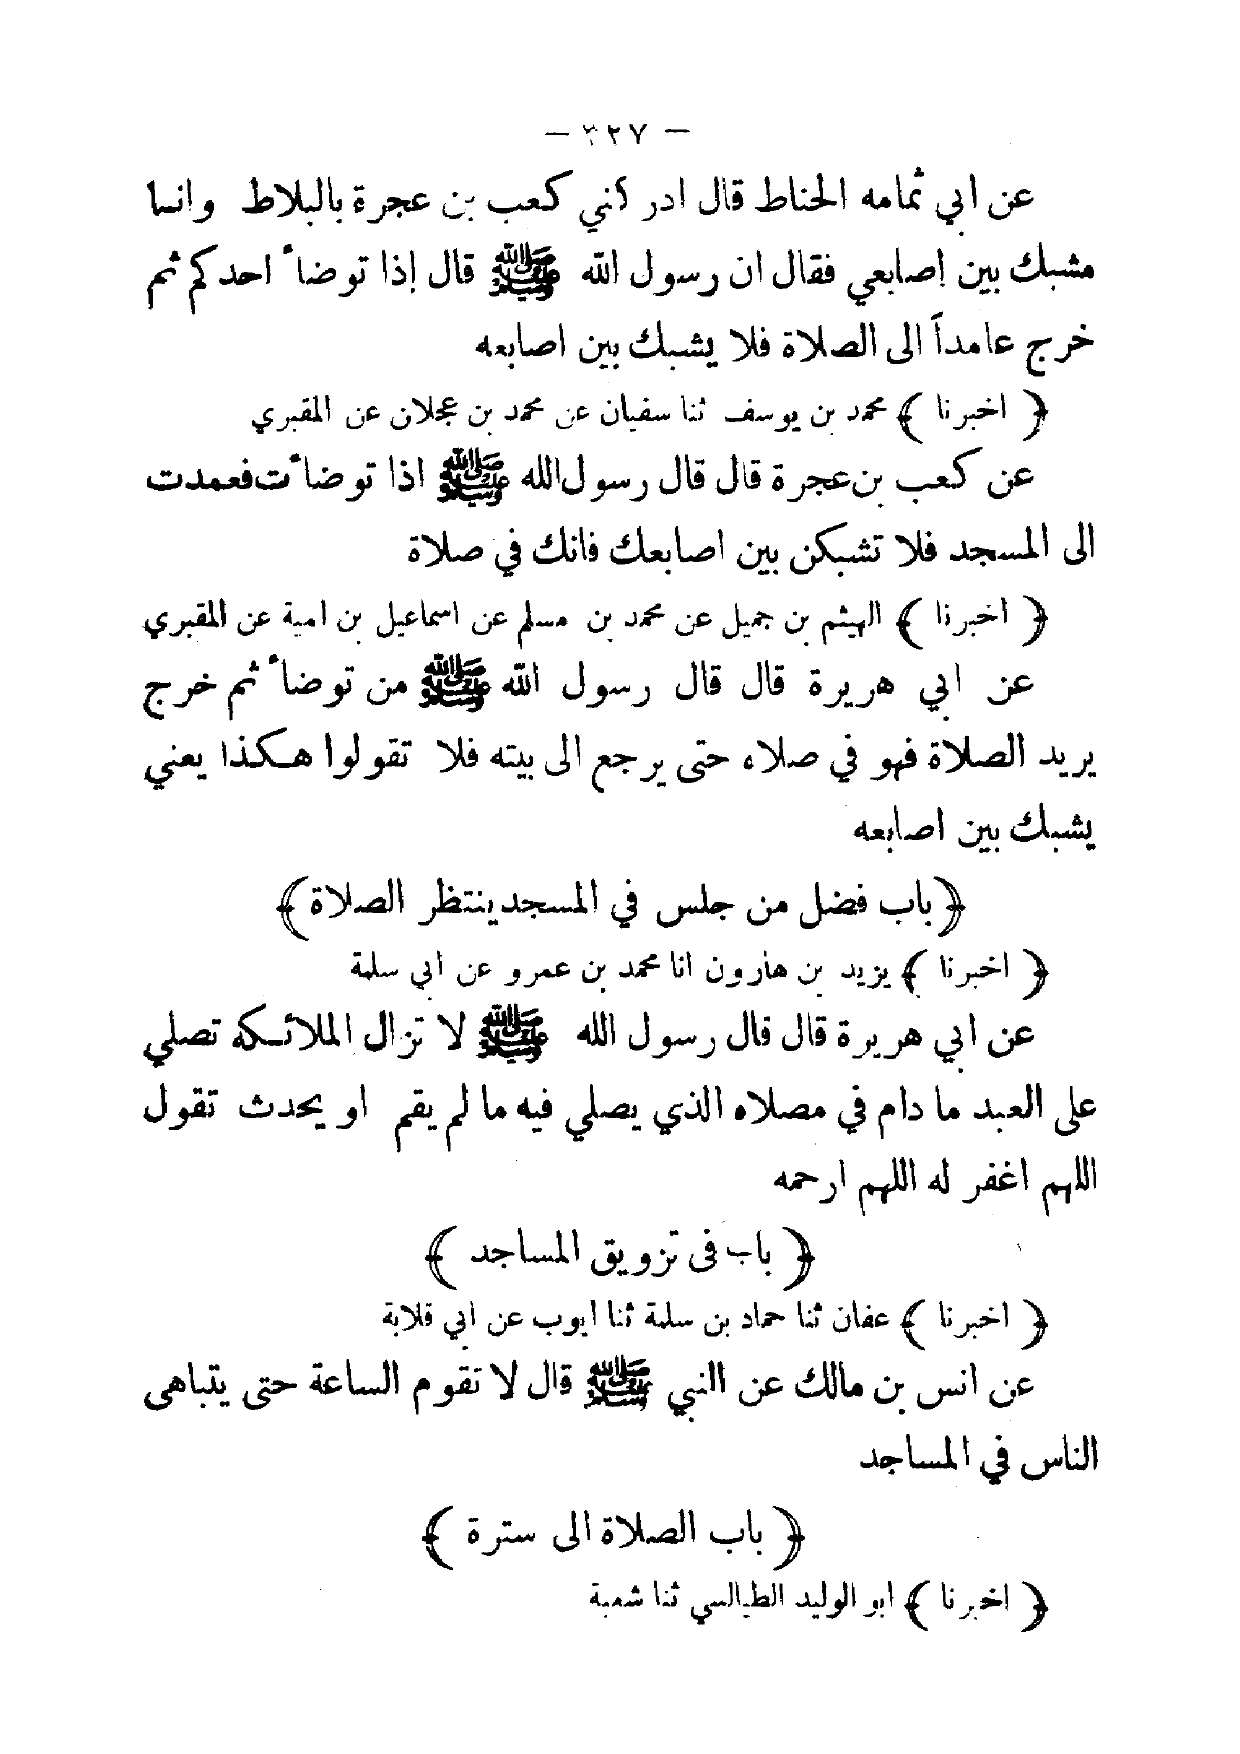 — ٣٢٧ —
عن ابي ثمامه الحناط قال ادر كني كعب بن عجرة بالبلاط وانا
مشبك بين إصابعي فقال ان رسول الله ﷺ قال إذا توضأ احدكم ثم
خرج عامداً الى الصلاة فلا يشبك بين اصابعه
﴿ اخبرنا ﴾ محمد بن يوسف ثنا سفيان عن محمد بن عجلان عن المقبري
عن كعب بن عجرة قال قال رسول الله ﷺ اذا توضأت فعمدت
الى المسجد فلا تشبكن بين اصابعك فانك في صلاة
﴿ اخبرنا ﴾ الهيثم بن جميل عن محمد بن مسلم عن اسماعيل بن امية عن المقبري
عن ابي هريرة قال قال رسول الله ﷺ من توضأ ثم خرج
يريد الصلاة فهو في صلاه حتى يرجع الى بيته فلا تقولوا هكذا يعني
يشبك بين اصابعه
﴿باب فضل من جلس في المسجد ينتظر الصلاة﴾
﴿ اخبرنا ﴾ يزيد بن هارون انا محمد بن عمرو عن ابي سلمة
عن ابي هريرة قال قال رسول الله ﷺ لا تزال الملائكة تصلي
على العبد ما دام في مصلاه الذي يصلي فيه ما لم يقم او يحدث تقول
اللهم اغفر له اللهم ارحمه
﴿ باب في تزويق المساجد ﴾
﴿ اخبرنا ﴾ عفان ثنا حماد بن سلمة ثنا ايوب عن ابي قلابة
عن انس بن مالك عن النبي ﷺ قال لا تقوم الساعة حتى يتباهى
الناس في المساجد
﴿ باب الصلاة الى سترة ﴾
﴿ اخبرنا ﴾ ابو الوليد الطيالسي ثنا شعبة